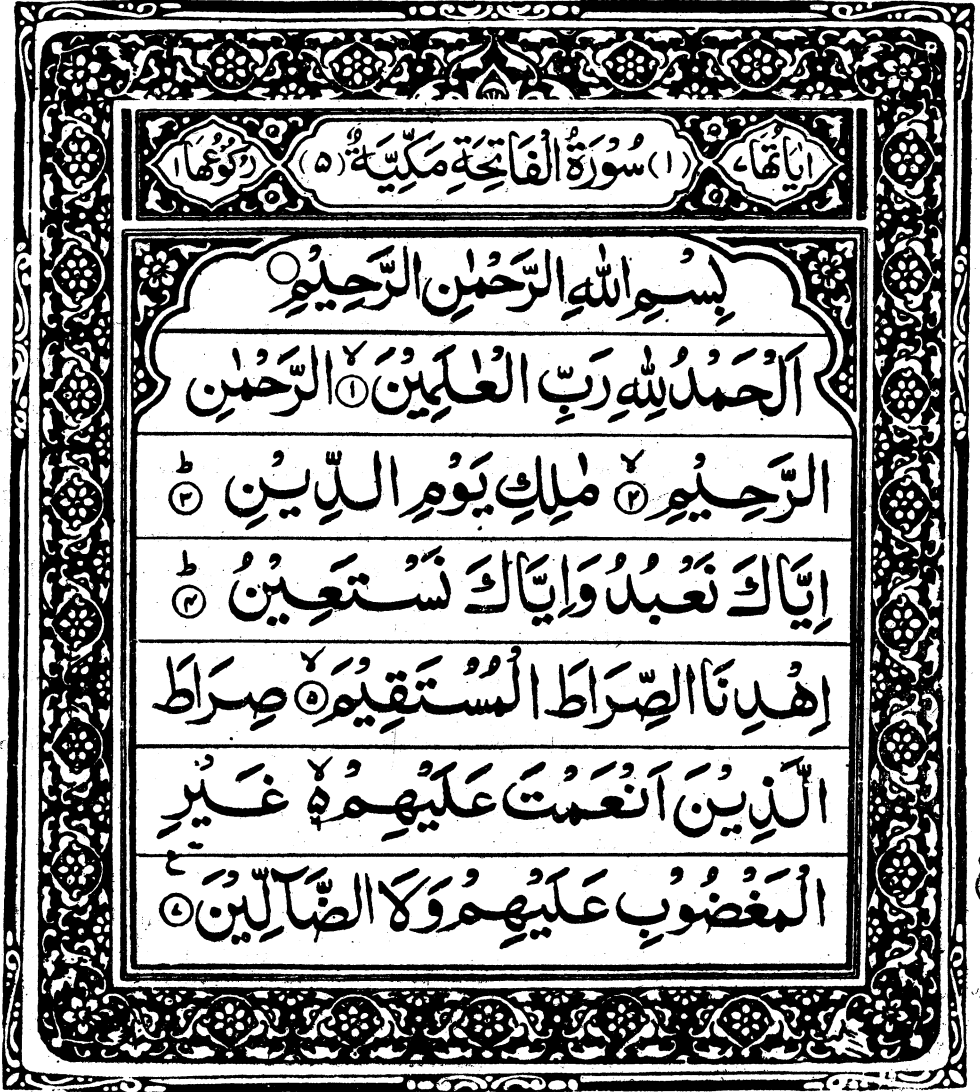 اٰيَاتُهَا ٧ (١) سُوْرَةُ الْفَاتِحَةِ مَكِّيَّةٌ (٥) رُكُوْعُهَا ١
بِسْمِ اللّٰهِ الرَّحْمٰنِ الرَّحِيْمِ
اَلْحَمْدُ لِلّٰهِ رَبِّ الْعٰلَمِيْنَ ۙ ﴿١﴾ الرَّحْمٰنِ
الرَّحِيْمِ ۙ ﴿٢﴾ مٰلِكِ يَوْمِ الدِّيْنِ ؕ ﴿٣﴾
اِيَّاكَ نَعْبُدُ وَاِيَّاكَ نَسْتَعِيْنُ ؕ ﴿۴﴾
اِهْدِنَا الصِّرَاطَ الْمُسْتَقِيْمَ ۙ ﴿۵﴾ صِرَاطَ
الَّذِيْنَ اَنْعَمْتَ عَلَيْهِمْ ۙ۬ۙ غَيْرِ
الْمَغْضُوْبِ عَلَيْهِمْ وَلَا الضَّآلِّيْنَ ﴿٧﴾ ع